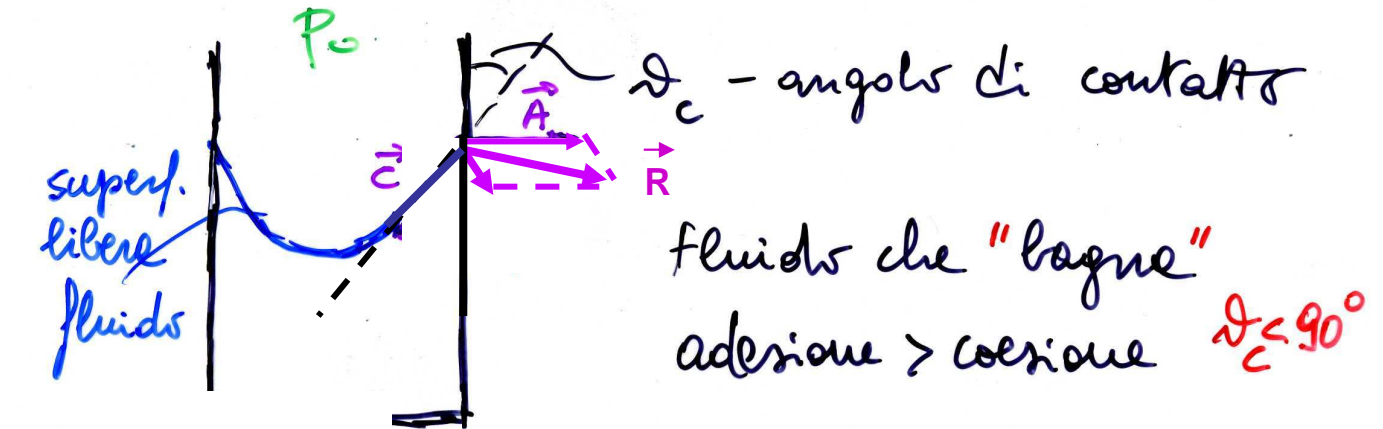 P₀
ϑc - angolo di contatto
A
C
R
superf.
libera
fluido
fluido che "bagna"
adesione > coesione ϑc < 90°